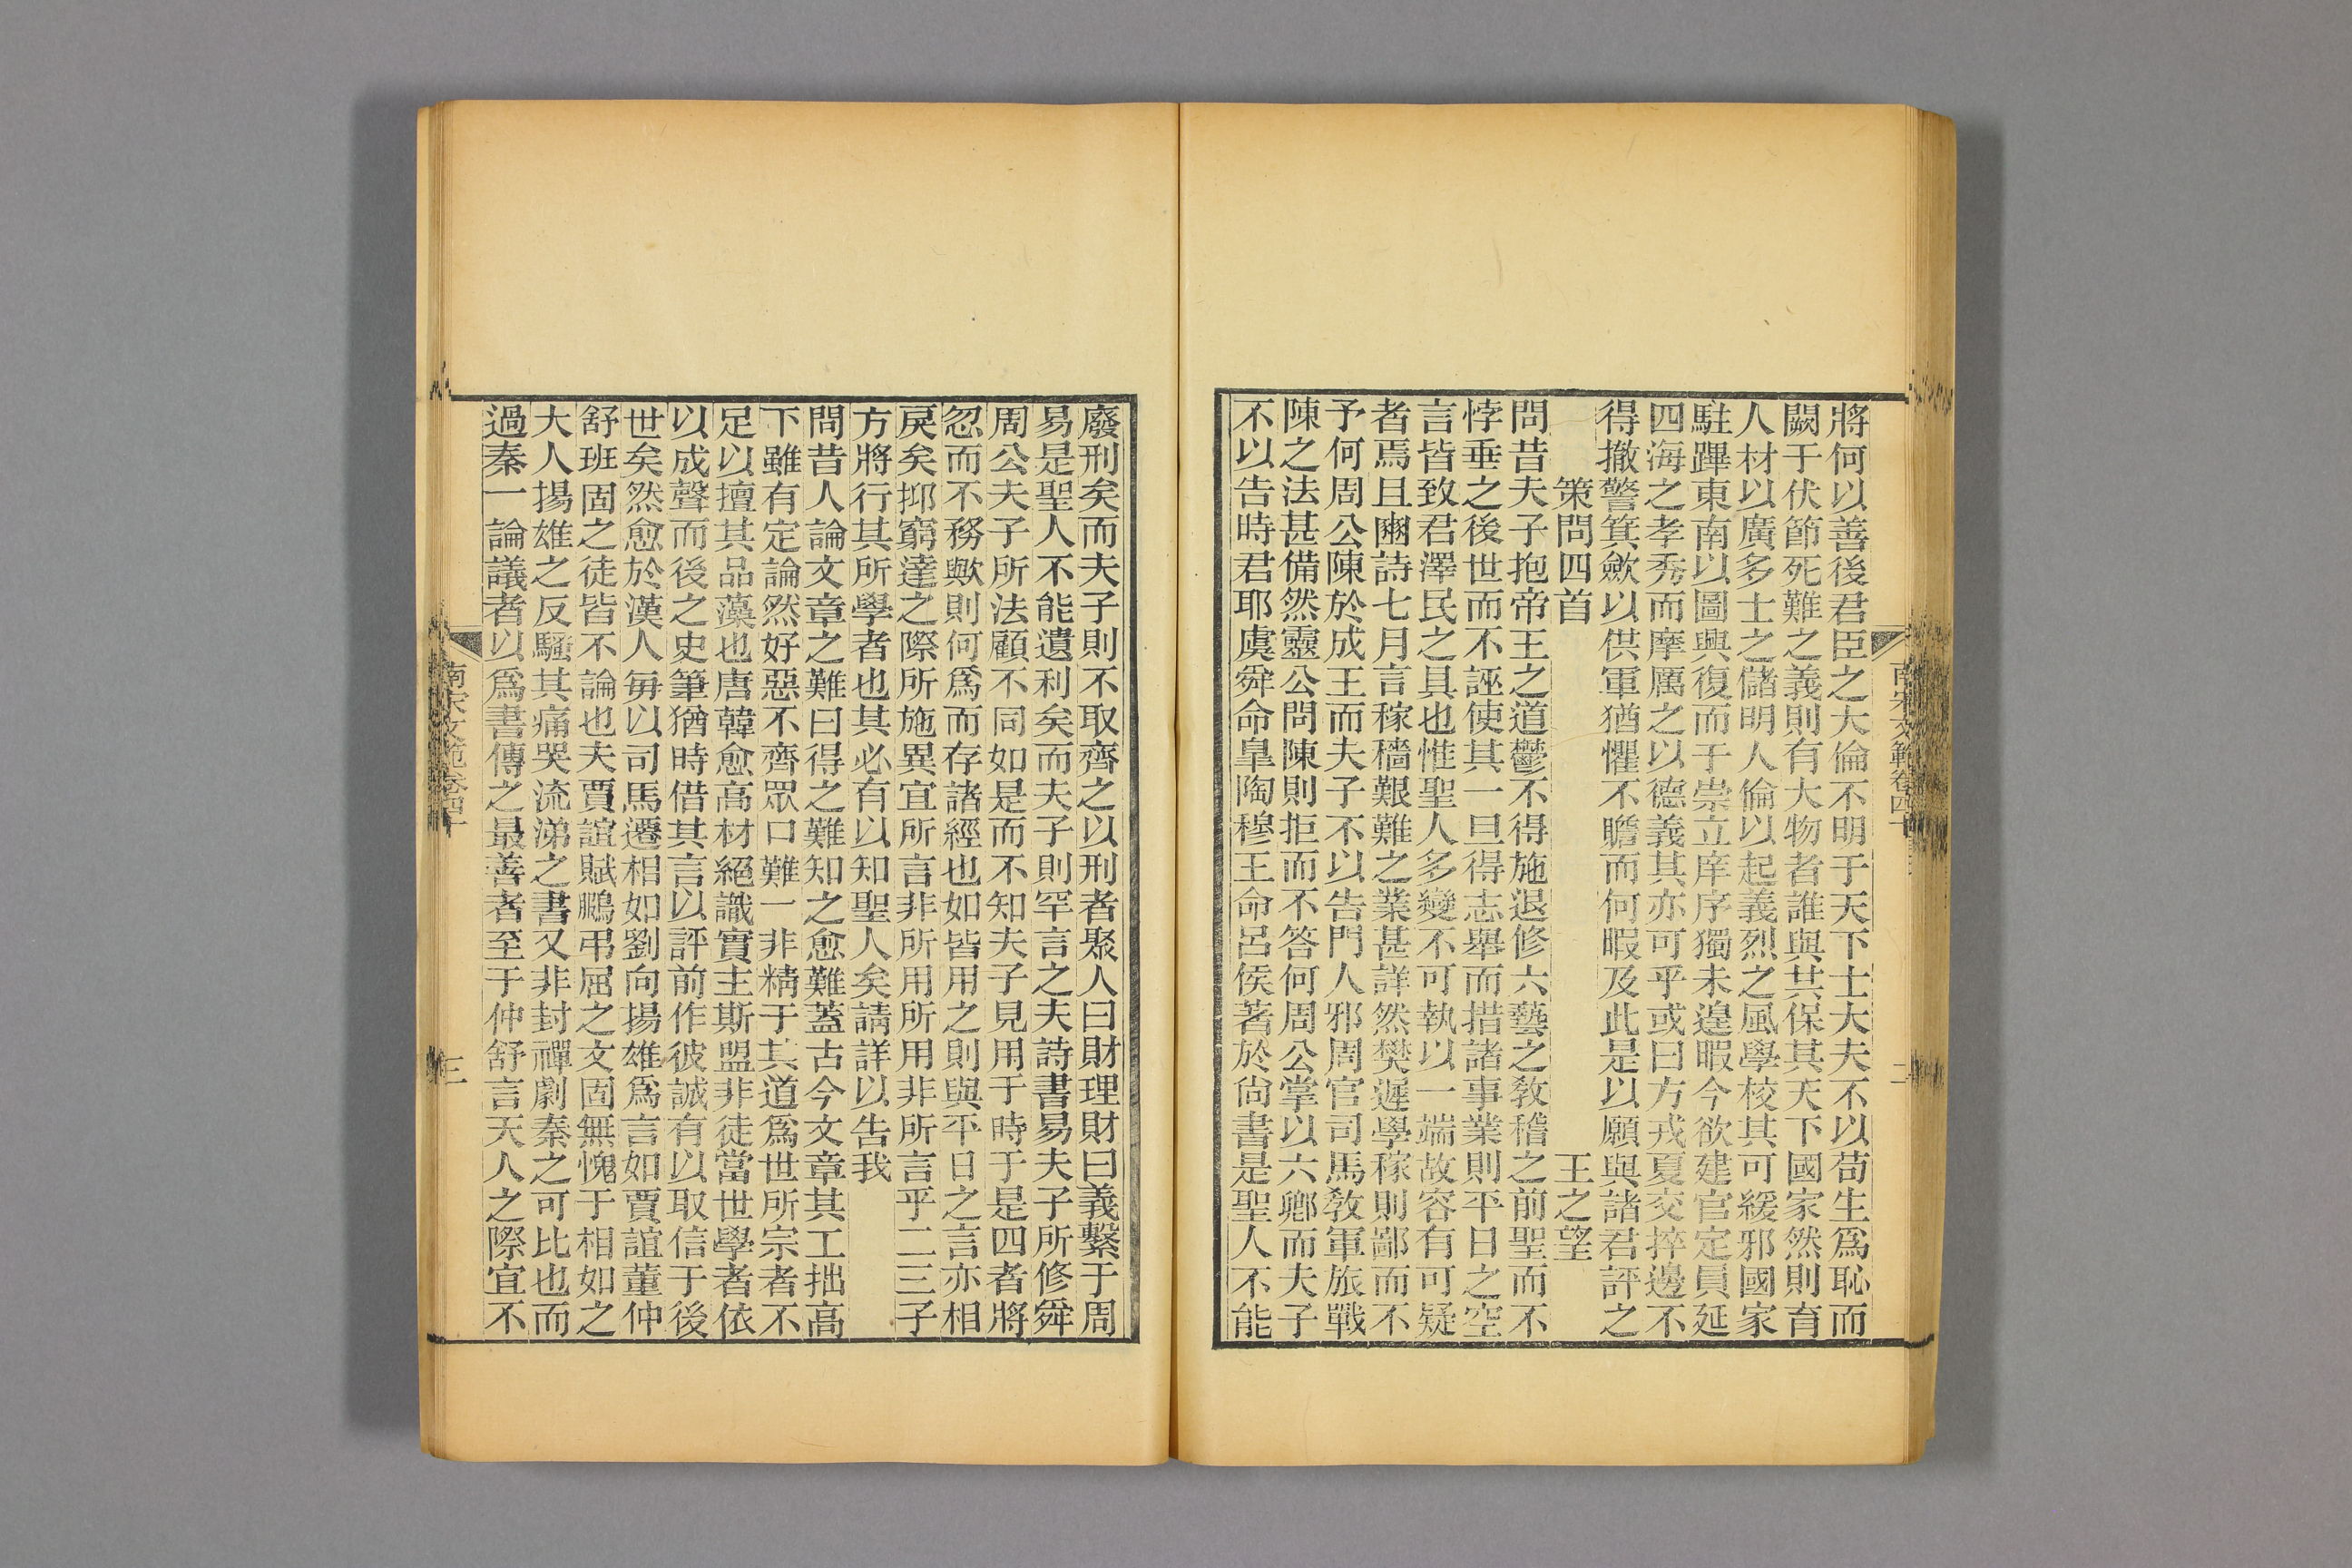 將何以善後君臣之大倫不明于天下士大夫不以苟生爲恥而
闕于伏節死難之義則有大物者誰與其保其天下國家然則育
人材以廣多士之儲明人倫以起義烈之風學校其可緩邪國家
駐蹕東南以圖興復而于崇立庠序獨未遑暇今欲建官定員延
四海之孝秀而摩厲之以德義其亦可乎或曰方戎夏交捽邊不
得撤警箕歛以供軍猶懼不贍而何暇及此是以願與諸君評之
策問四首
王之望
問昔夫子抱帝王之道鬱不得施退修六藝之敎稽之前聖而不
悖垂之後世而不誣使其一旦得志舉而措諸事業則平日之空
言皆致君澤民之具也惟聖人多變不可執以一端故容有可疑
者焉且豳詩七月言稼穡艱難之業甚詳然樊遲學稼則鄙而不
予何周公陳於成王而夫子不以告門人邪周官司馬敎軍旅戰
陳之法甚備然靈公問陳則拒而不答何周公掌以六卿而夫子
不以告時君耶虞舜命臯陶穆王命呂侯著於尙書是聖人不能
南宋文範卷四十
二
廢刑矣而夫子則不取齊之以刑者聚人曰財理財曰義繫于周
易是聖人不能遺利矣而夫子則罕言之夫詩書易夫子所修舜
周公夫子所法顧不同如是而不知夫子見用于時于是四者將
忽而不務歟則何爲而存諸經也如皆用之則與平日之言亦相
戾矣抑窮達之際所施異宜所言非所用所用非所言乎二三子
方將行其所學者也其必有以知聖人矣請詳以告我
問昔人論文章之難曰得之難知之愈難蓋古今文章其工拙高
下雖有定論然好惡不齊眾口難一非精于其道爲世所宗者不
足以擅其品藻也唐韓愈高材絕識實主斯盟非徒當世學者依
以成聲而後之史筆猶時借其言以評前作彼誠有以取信于後
世矣然愈於漢人每以司馬遷相如劉向揚雄爲言如賈誼董仲
舒班固之徒皆不論也夫賈誼賦鵩弔屈之文固無愧于相如之
大人揚雄之反騷其痛哭流涕之書又非封禪劇秦之可比也而
過秦一論議者以爲書傳之最善者至于仲舒言天人之際宜不
南宋文範卷四十
三